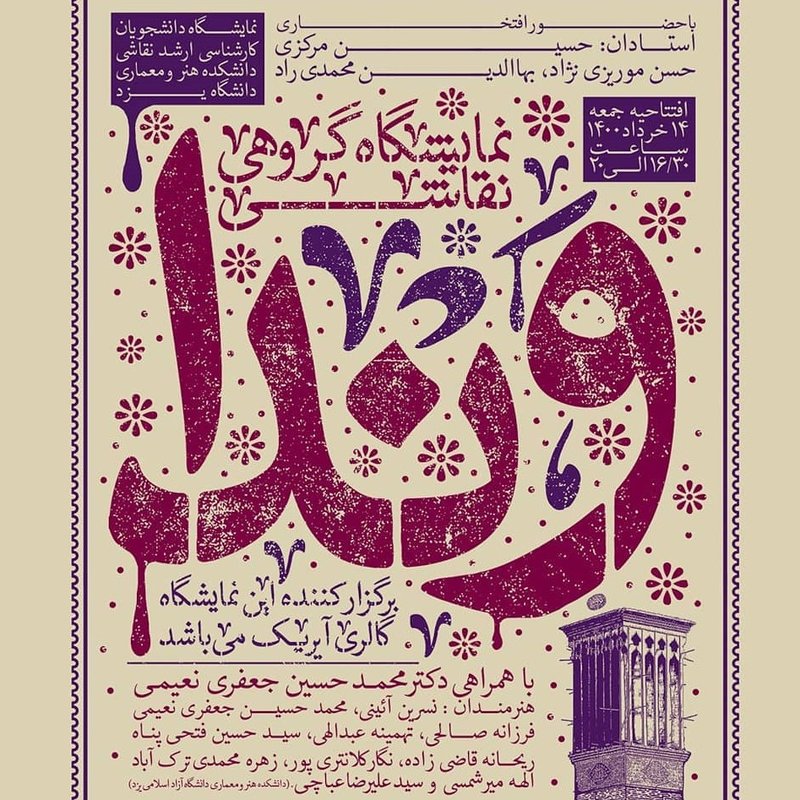 با حضور افتخاری
استادان: حسین مرکزی
حسن موریزی نژاد، بهاالدین محمدی راد
نمایشگاه دانشجویان
کارشناسی ارشد نقاشی
دانشکده هنر و معماری
دانشگاه یزد
افتتاحیه جمعه
۱۴ خرداد ۱۴۰۰
ساعت
۱۶/۳۰ الی ۲۰
نمایشگاه گروهی
نقاشی
وندا
برگزار کننده این نمایشگاه
گالری آیریک می باشد
با همراهی دکتر محمد حسین جعفری نعیمی
هنرمندان: نسرین آئینی، محمد حسین جعفری نعیمی
فرزانه صالحی، تهمینه عبدالهی، سید حسین فتحی پناه
ریحانه قاضی زاده، نگار کلانتری پور، زهره محمدی ترک آباد
الهه میرشمسی و سید علیرضا عباچی. (دانشکده هنر و معماری دانشگاه آزاد اسلامی یزد)